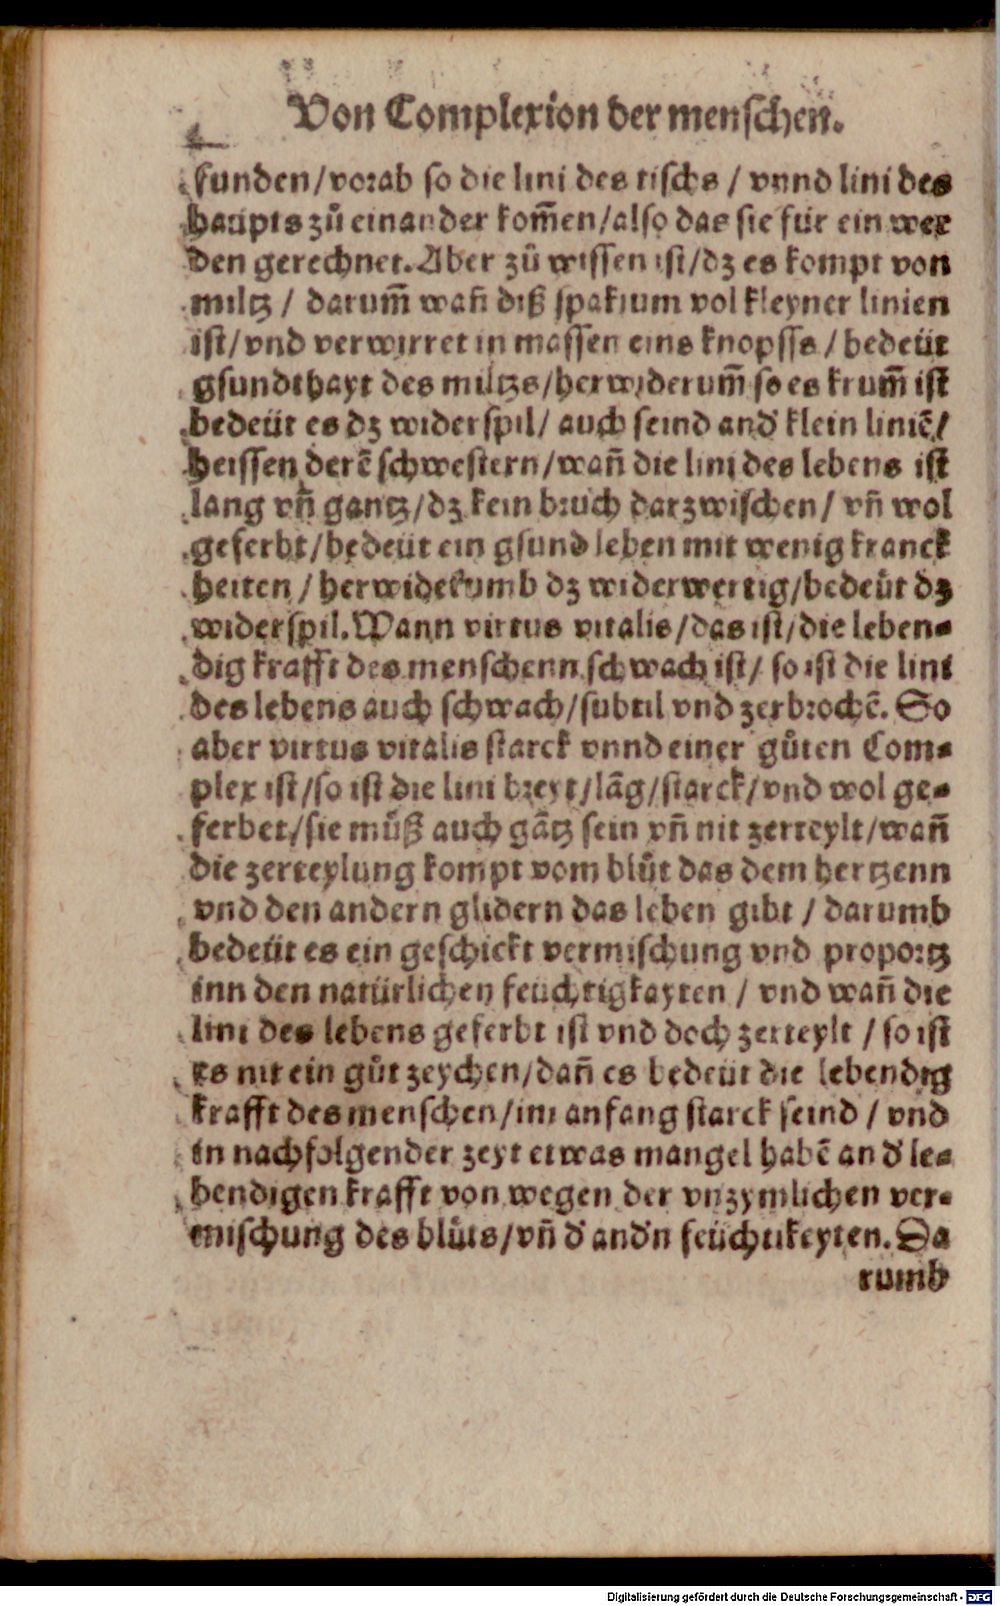 Von Complexion der menschen.
funden/vorab so die lini des tischs / vnnd lini des
haupts zů einander kom̃en/also das sie für ein wer
den gerechnet. Aber zů wissen ist/dz es kompt von
miltz / darum̃ wañ diß spatium vol kleyner linien
ist/vnd verwirret in massen eins knopffs / bedeüt
gsundthayt des miltzs/herwiderum̃ so es krum̃ ist
bedeüt es dz widerspil/ auch seind and' klein liniē/
heissen derē schwestern/wañ die lini des lebens ist
lang vñ gantz/dz kein bruch darzwischen/ vñ wol
geferbt/bedeüt ein gsund leben mit wenig kranck
heiten / herwiderumb dz widerwertig/bedeüt dz
widerspil. Wann virtus vitalis/das ist/die leben⸗
dig krafft des menschenn schwach ist/ so ist die lini
des lebens auch schwach/subtil vnd zerbrochē. So
aber virtus vitalis starck vnnd einer gůten Com⸗
plex ist/so ist die lini breyt/lāg/starck/vnd wol ge⸗
ferbet/sie můß auch gātz sein vñ nit zerteylt/wañ
die zerteylung kompt vom blůt das dem hertzenn
vnd den andern glidern das leben gibt / darumb
bedeüt es ein geschickt vermischung vnd proportz
inn den natürlichen feüchtigkayten / vnd wañ die
lini des lebens geferbt ist vnd doch zerteylt / so ist
es nit ein gůt zeychen/dañ es bedeüt die lebendig
krafft des menschen/im anfang starck seind / vnd
in nachfolgender zeyt etwas mangel habē an d' le⸗
bendigen krafft von wegen der vnzymlichen ver⸗
mischung des blůts/vñ d' and'n feüchtikeyten. Da
rumb
Digitalisierung gefördert durch die Deutsche Forschungsgemeinschaft - DFG